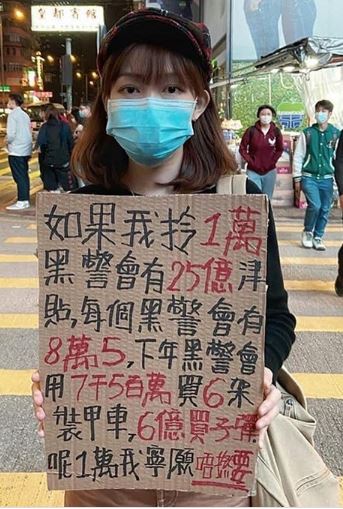 皇都賓館
如果我拎1萬
黑警會有25億津
貼,每個黑警會有
8萬5,下年黑警會
用7千5百萬買6架
裝甲車,6億買子彈
呢1萬我寧願唔撚要